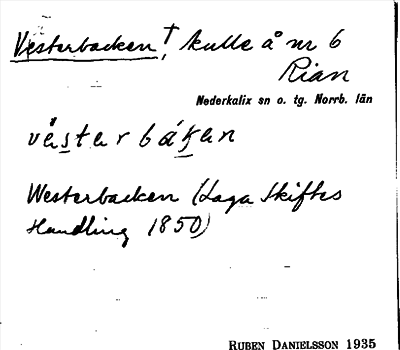 Vesterbacken†, kulle å nr 6
Rian
Nederkalix sn o. tg. Norrb. län
västerbákan
Westerbacken (Laga Skiftes
Handling 1850)
RUBEN DANIELSSON 1935